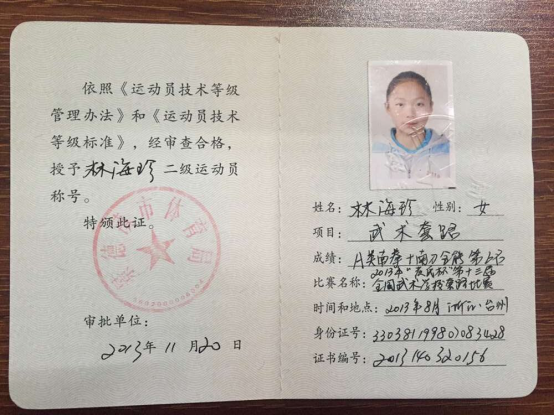 依照《运动员技术等级
管理办法》和《运动员技术
等级标准》，经审查合格，
授予林海珍二级运动员
称号。
特颁此证。
市体育局
审批单位：
2013年11月20日
姓名：林海珍 性别：女
项目：武术套路
成绩：A类南拳+南刀全能第6名
2013年"
杯"第十三届
比赛名称：全国武术学校套路比赛
时间和地点：2013年8月 浙江·台州
身份证号：
证书编号：2013140320156